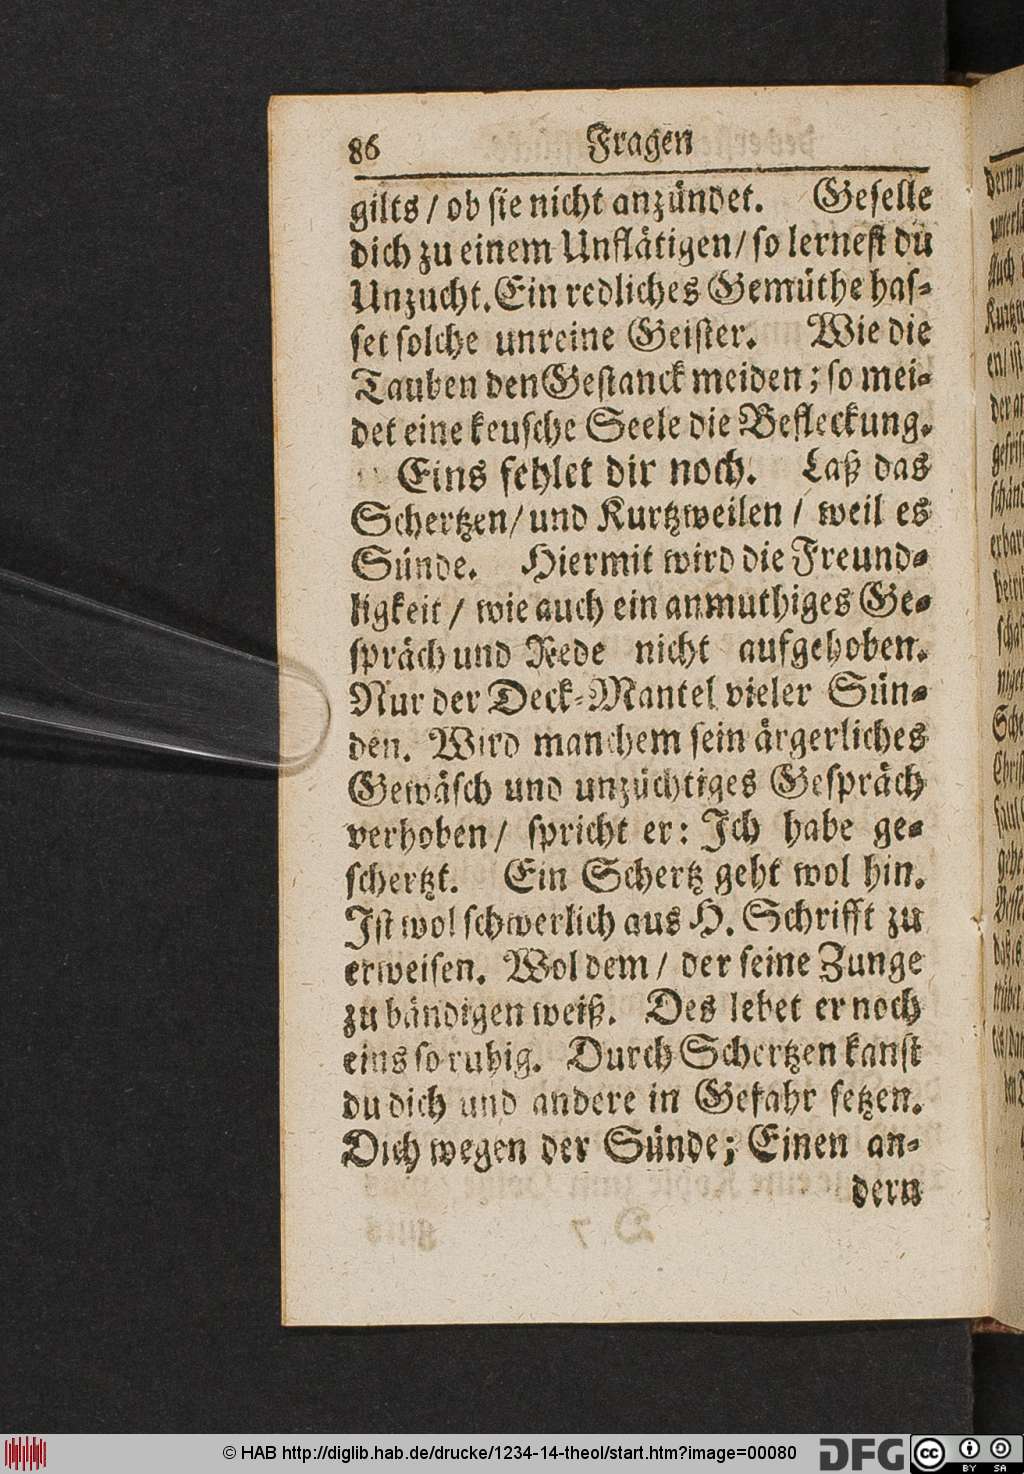 86 Fragen
gilts / ob sie nicht anzündet. Geselle
dich zu einem Unflätigen / so lernest du
Unzucht. Ein redliches Gemüthe has-
set solche unreine Geister. Wie die
Tauben den Gestanck meiden; so mei-
det eine keusche Seele die Befleckung.
Eins fehlet dir noch. Laß das
Schertzen / und Kurtzweilen / weil es
Sünde. Hiermit wird die Freund-
ligkeit / wie auch ein anmuthiges Ge-
spräch und Rede nicht aufgehoben.
Nur der Deck-Mantel vieler Sün-
den. Wird manchem sein ärgerliches
Gewäsch und unzüchtiges Gespräch
verhoben / spricht er: Ich habe ge-
schertzt. Ein Schertz geht wol hin.
Ist wol schwerlich aus H. Schrifft zu
erweisen. Wol dem / der seine Zunge
zu bändigen weiß. Des lebet er noch
eins so ruhig. Durch Schertzen kanst
du dich und andere in Gefahr setzen.
Dich wegen der Sünde; Einen an-
dern
© HAB http://diglib.hab.de/drucke/1234-14-theol/start.htm?image=00080
DFG
cc BY SA